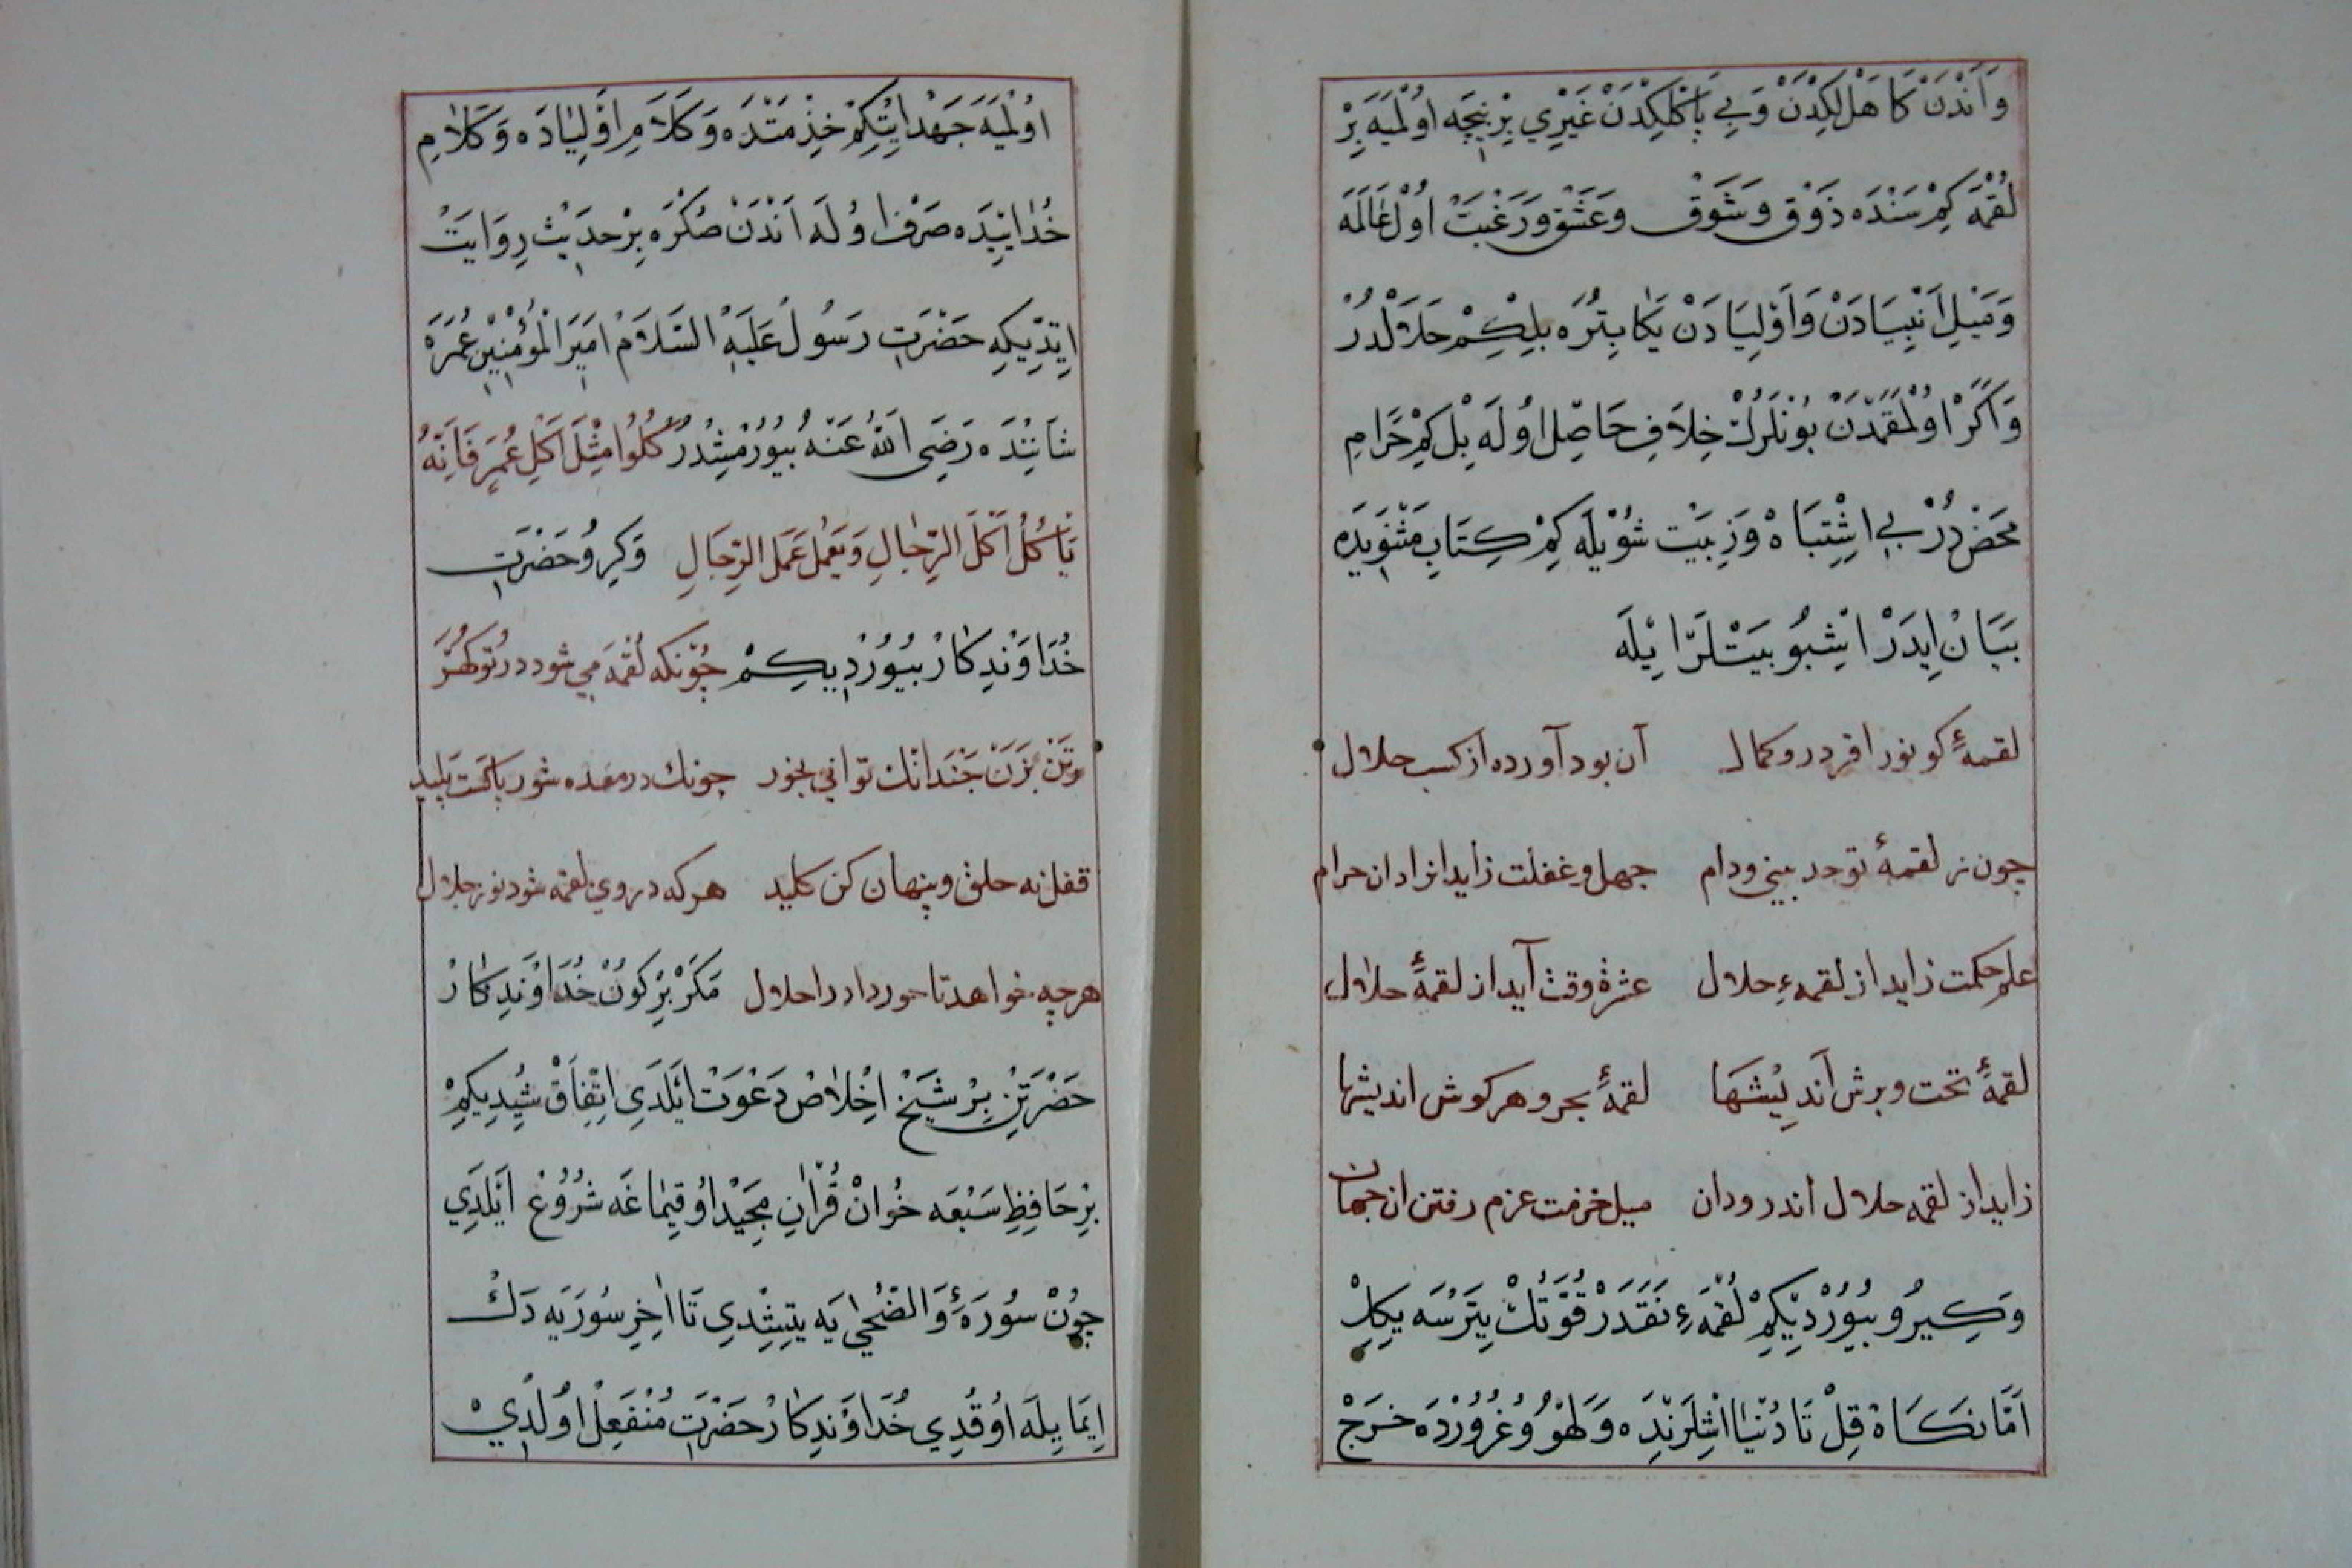 وَاَنْدَنْ كَاهَلْلِكِدَنْ وَبِي بَاكْلِكِدَنْ غَيْرِي بِرْ نِيچَه اُولْمَيَه بِرْ
لُقْمَه كِمْ سَنْدَه ذَوْق وَشَوْق وعَشْق وَرَغْبَتْ اُولْ عَالَمَه
وَمَيْلِ اَنْبِيَادَنْ وَاَوْلِيَادَنْ يَكَا بِتُرَه بِلكِمْ حَلَالْدُرْ
وَاَكَرْ اُولْقْمَدَنْ بُونْلَرُكْ خِلَافِ حَاصِل اُولَه بِلْ كِمْ حَرَامِ
مَحَضْ دُرْ بِي اِشْتِبَاهْ وَزِبَيْت شُوْيْلَه كِمْ كِتَابِ مَثْنَوِيدَه
بَيَانْ اِيدَرْ اِشْبُو بَيْتْلَرْ اِيْلَه
لقمهٔ كو نور افزد در و كمال آن بود آورده از كسب حلال
چون ز لقمهٔ تو حد بينی ودام جهل وغفلت زايد انرا دان حرام
علم حكمت زايد از لقمهء حلال عثرة وقت آيد از لقمهٔ حلال
لقمهٔ تخت وبرش اَنديشَهَا لقمهٔ بحر وهر كوش انديشها
زايد از لقمه حلال اندر ودان ميل خزمت عزم رفتن ان جهان
وَكِيرُو بيُورْدِيكِمْ لُقْمَهءِ نَقَدَرْ قُوَّتُكْ يِتَرْسَه يِكِلْ
اَمَّا نكَاهْ قِلْ تَا دُنْيَا اِشْلَرِنْدَه وَلَهْوُ وُغُرُورْدَه خَرَجْ
اوُلْمَيَه جَهْد اِيْتكِمْ خِذْمَتْدَه وَكَلَامِ اَوْلِيَادَه وَكَلَامِ
خُدَايِيدَه صَرْف اوُلَه اَنْدَنْ صُكْرَه بِرْ حَدِيثْ رِوَايَتْ
اِيتدِيكِه حَضْرَتِ رَسُولْ عَلَيْهِ السَّلَامْ اَمِيرَ الْمُؤْمِنِينْ عُمَرَه
شَانِنْدَه رَضِيَ اللّٰهُ عَنْهُ بيُورْمِشْدُرْ كُلُوا مِثْلَ اَكْلِ عُمَرِ فَاِنَّهُ
يَأْكُلُ اَكْلَ الرِّجَالِ وَيَعْمَلُ عَمَلَ الرِّجَالِ وَكِرُو حَضْرَتِ
خُدَاوَنْدِكَارْ بيُورْدِيكِمْ چُونكه لُقْمَه مِي شود در تو كُهَرْ
وتَنْ بزَنْ چَنْدَانْك توانی بخور چونك در معده شور پاكت پليد
قفل نه حلق وپنهان كن كليد هر كه در وی لقمه شود نور جلال
هرچه خواهد تا خورد او را حلال مَكَرْ بِرْ كُونْ خُدَاوَنْدِكَارْ
حَضْرَتِنْ بِرْ شَيْخْ اِخْلَاصْ دَعْوَتْ اَيْلَدِي اِتِّفَاقْ شُيِدِيكِمْ
بِرْ حَافِظِ سَبْعَه خُوَانْ قُرْاٰنِ مَجِيدْ اُوقِيمَاغَه شُرُوعْ اَيْلَدِي
چُونْ سُورَهٔ وَالضُّحٰی يَه يِتِشْدِي تَا اٰخِرِ سُورَيَه دَكْ
اِيمَا يِلَه اُوقُدِي خُدَاوَنْدِكَارْ حَضْرَتِ مُنْفَعِلْ اُولْدِي